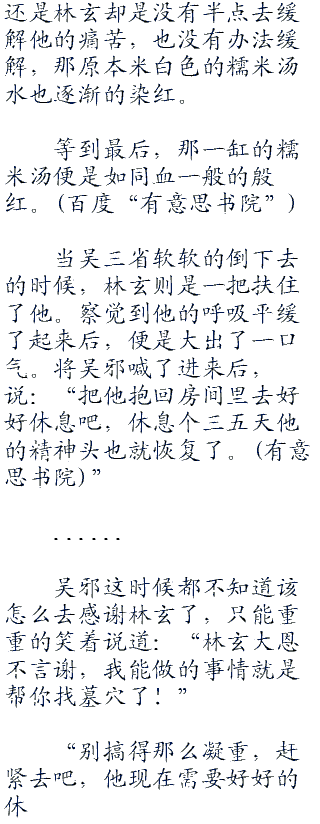 还是林玄却是没有半点去缓
解他的痛苦，也没有办法缓
解，那原本米白色的糯米汤
水也逐渐的染红。
等到最后，那一缸的糯
米汤便是如同血一般的殷
红。(百度“有意思书院”)
当吴三省软软的倒下去
的时候，林玄则是一把扶住
了他。察觉到他的呼吸平缓
了起来后，便是大出了一口
气。将吴邪喊了进来后，
说：“把他抱回房间里去好
好休息吧，休息个三五天他
的精神头也就恢复了。(有意
思书院)”
......
吴邪这时候都不知道该
怎么去感谢林玄了，只能重
重的笑着说道：“林玄大恩
不言谢，我能做的事情就是
帮你找墓穴了！”
“别搞得那么凝重，赶
紧去吧，他现在需要好好的
休